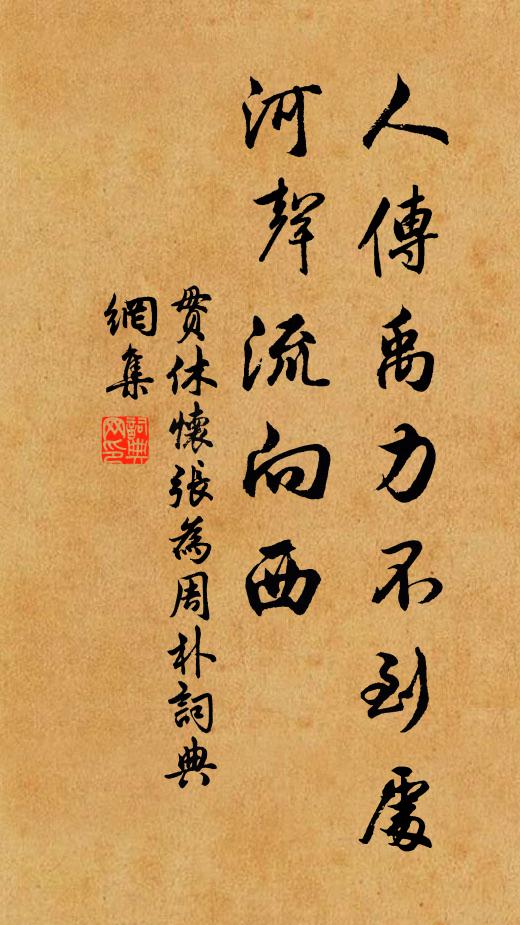 人傳禹力不到處
河聲流向西
貫休懷張為周朴詞典
網集
詞典
网印